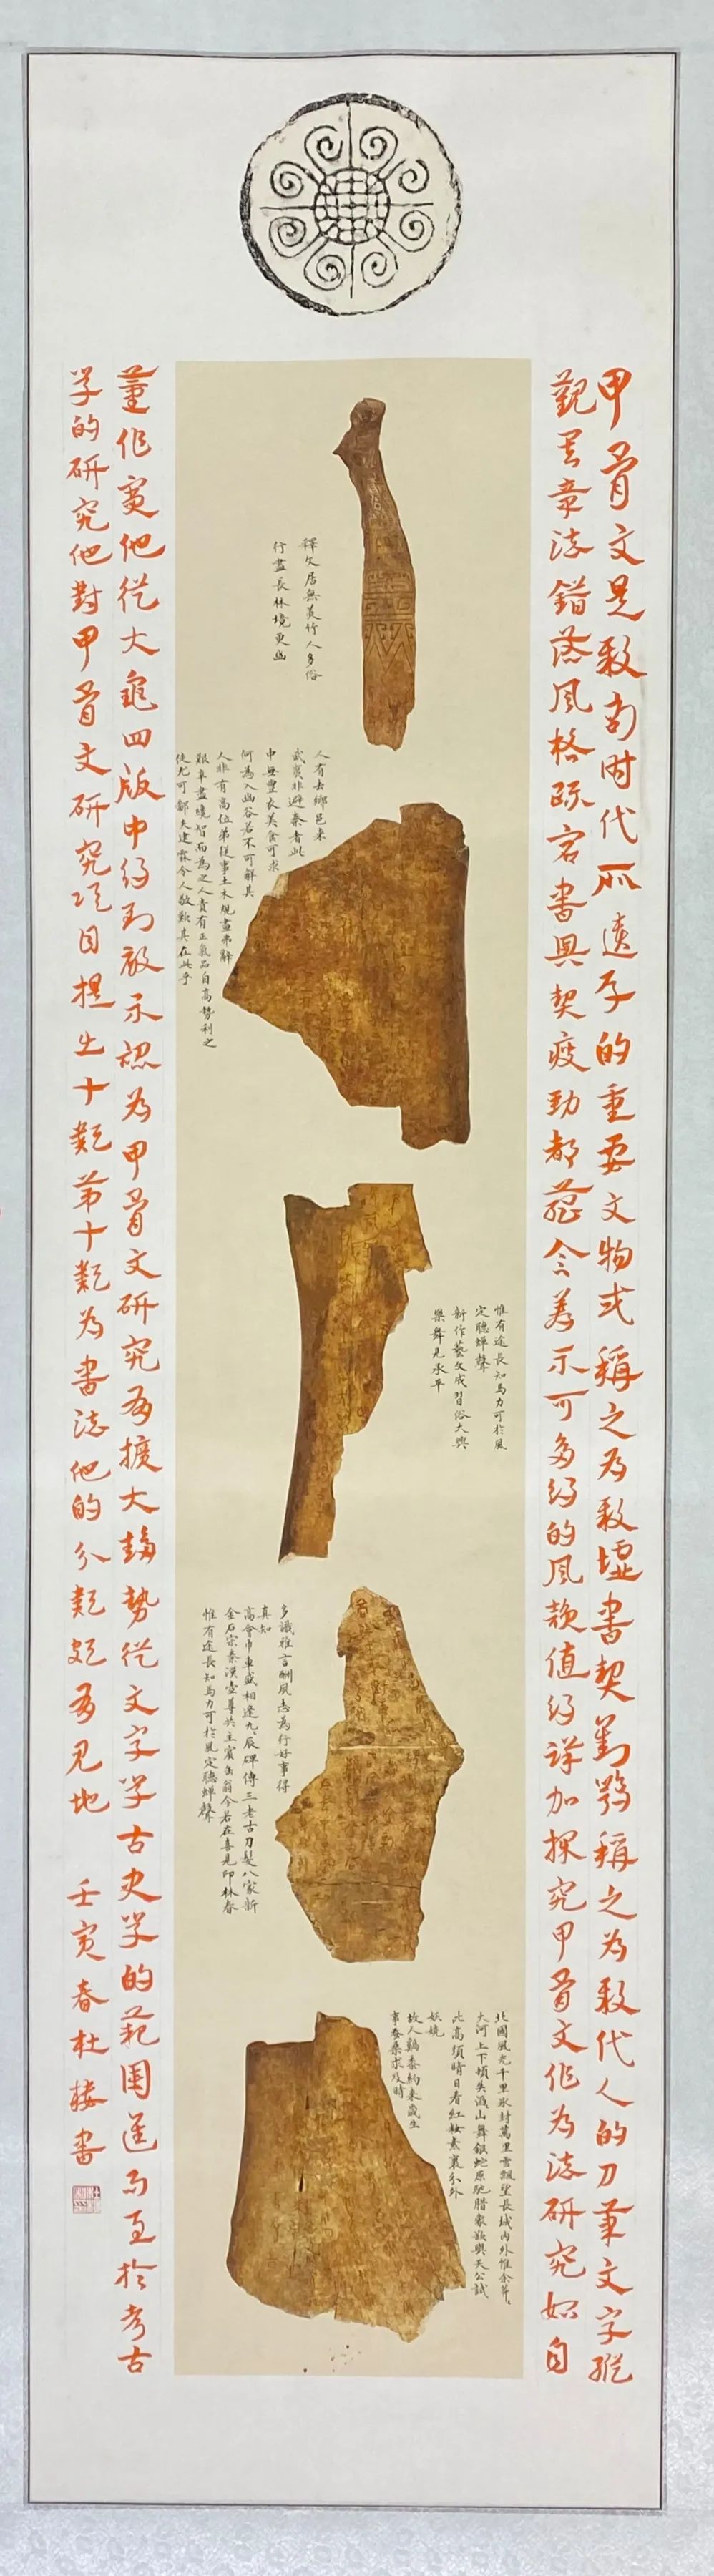 甲骨文是殷商时代所遗存的重要文物或稱之为殷墟書契剳鸮稱之为殷代人的刀筆文字縱
觀其章法錯落風格疏宕書與契疲勁都蕴含着不可多得的風韻值得详加探究甲骨文作为法研究如自
董作賓他從大龜四版中得到啟示認为甲骨文研究有擴大趋勢從文字学古史学的范围進而至於考古
学的研究他對甲骨文研究项目提出十類第十類为書法他的分類頗有見地 壬寅春杜楼書
釋文居無美竹人多俗
行盡長林境更幽
人有去鄉邑来
武賓非避秦者此
中無豐衣美食可求
何為入幽谷若不可解其
人非有高位弟從事土木規畫弗辭
艱辛盡繞智而為之人貴有正氣品自高勢利之
徒尤可鄙夫建霖今人敬歎其在此乎
惟有途長知馬力可於風
定聽蟬聲
新作藝文成習俗大興
樂舞見承平
多識雅言酬夙志為行好事得
真知
高會巾車藏相逢九辰碑傳三老古刀髮八家新
金石宗秦漢壺尊共主賓缶翁今若在喜見印林春
惟有途長知馬力可於風定聽蟬聲
北國風光千里氷封萬里雪飄望長城内外惟余莽
大河上下頓失滔山舞銀蛇原馳腊象欲與天公試
比高須晴日看紅妝素裹分外
妖嬈
故人鷄黍約来歲生
事蚕桑求及時